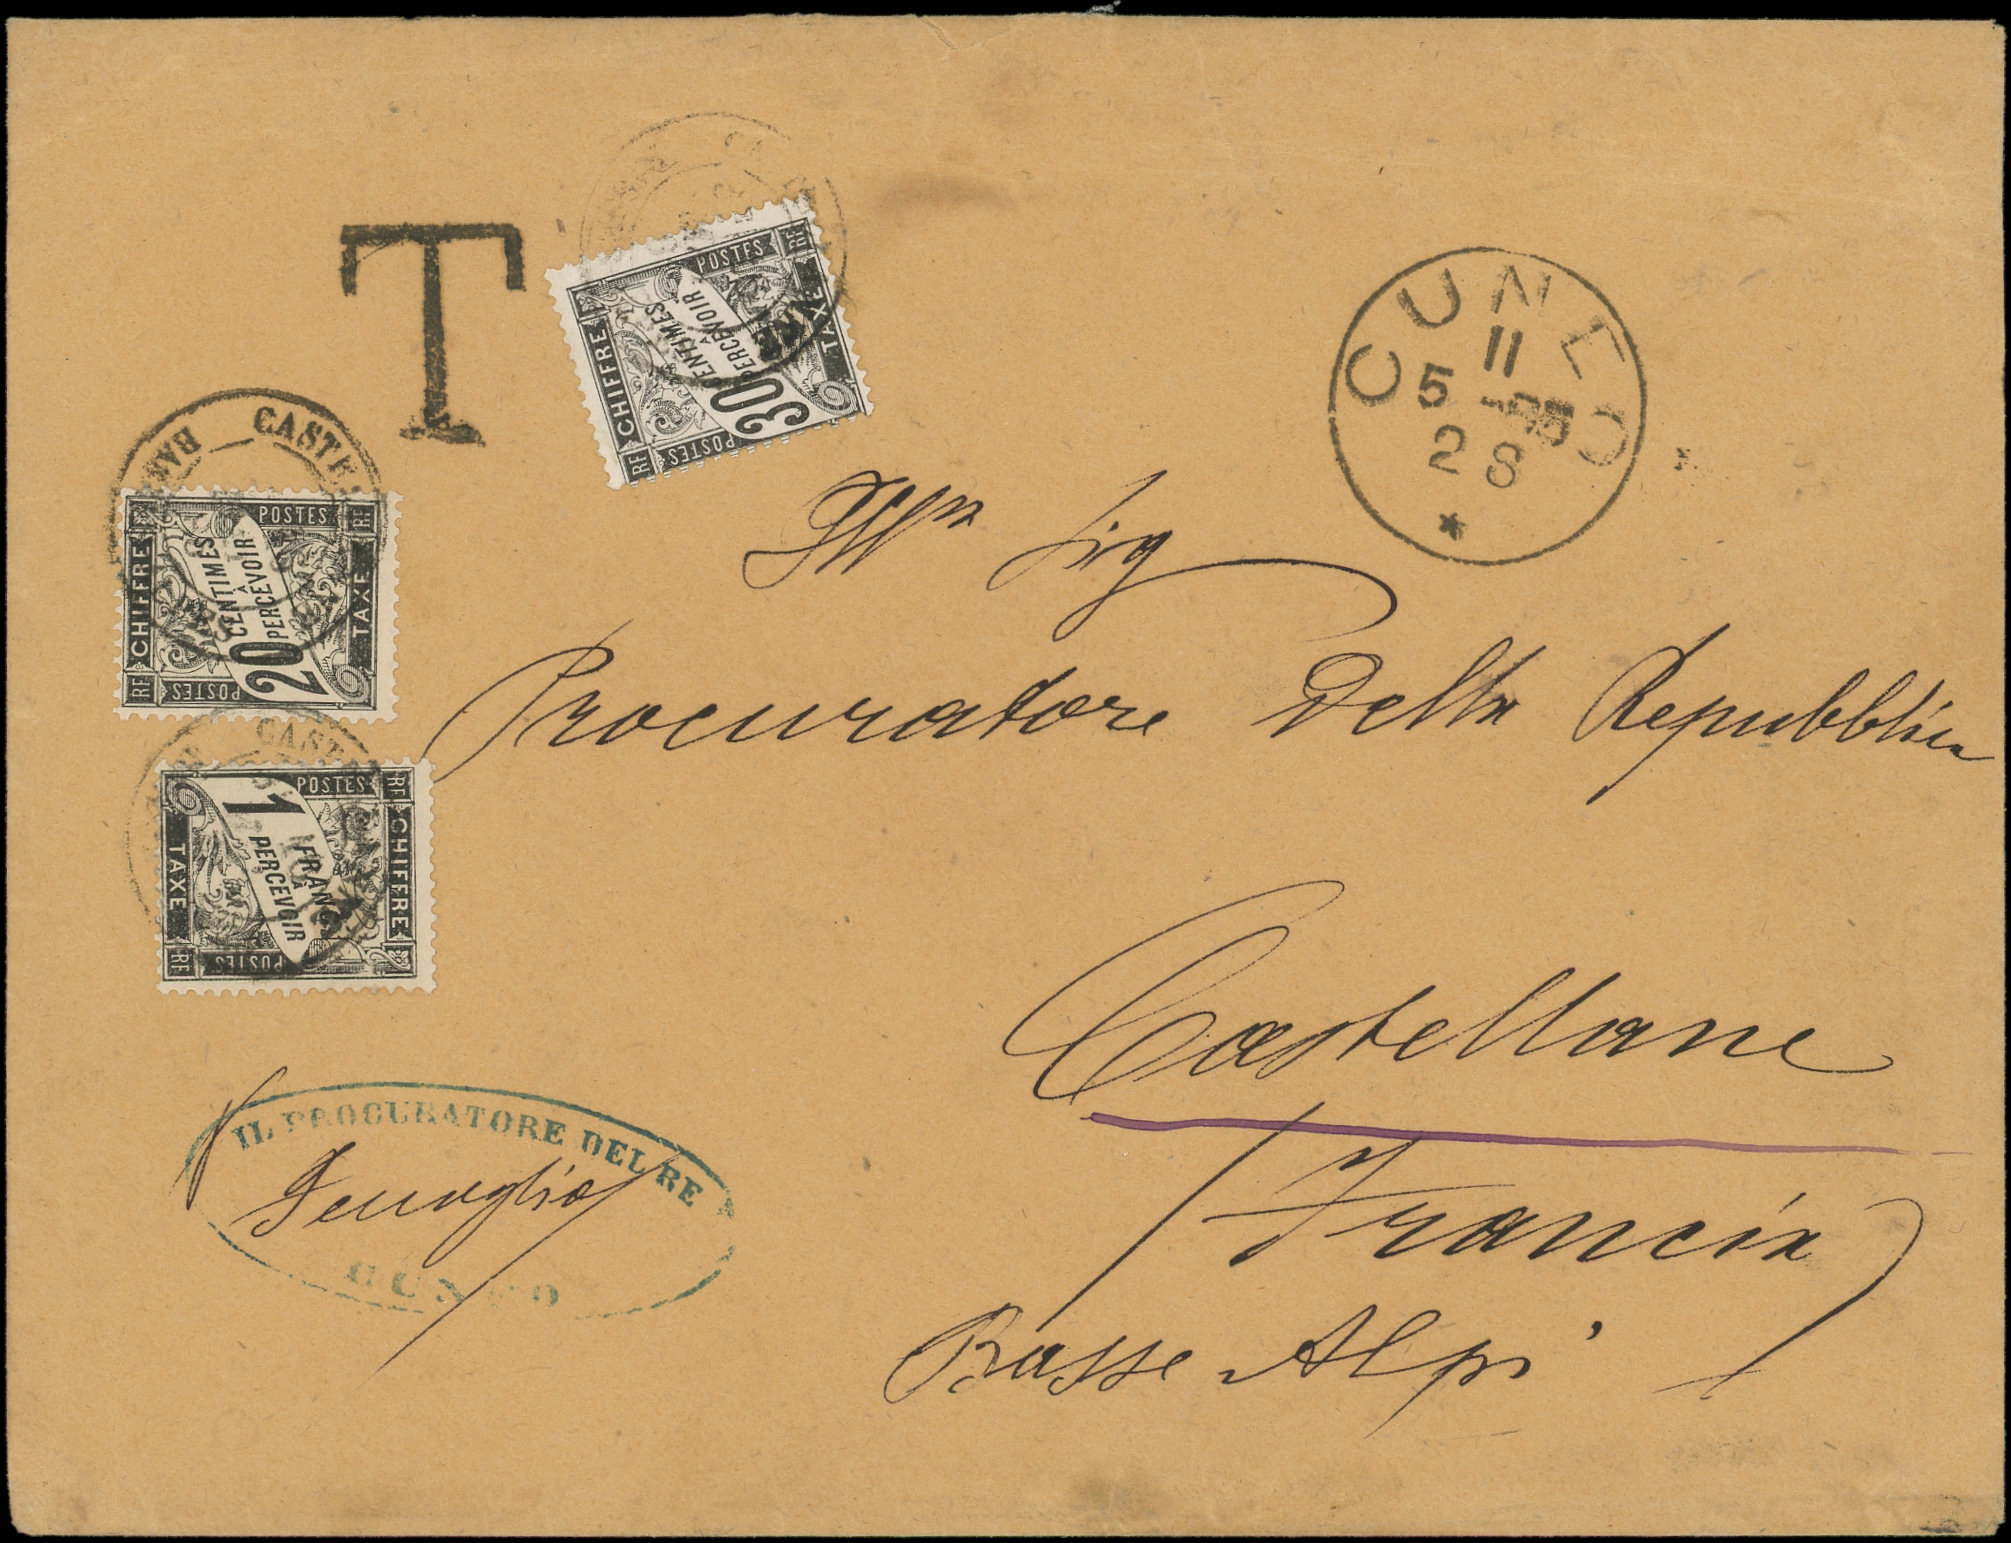 T
CAST
30
CENTIMES
À
PERCEVOIR
CHIFFRE
TAXE
POSTES
POSTES
RF
RF
CUNEO
11
5 -95
2 S
*
BAS CASTE
20
CENTIMES
À
PERCEVOIR
CHIFFRE
TAXE
POSTES
POSTES
RF
RF
CAST
1
FRANC
À
PERCEVOIR
CHIFFRE
TAXE
POSTES
POSTES
RF
RF
Illmo Sig
Procuratore Della Repubblica
Castellane
Francia
Basse Alpi
IL PROCURATORE DEL RE
CUNEO